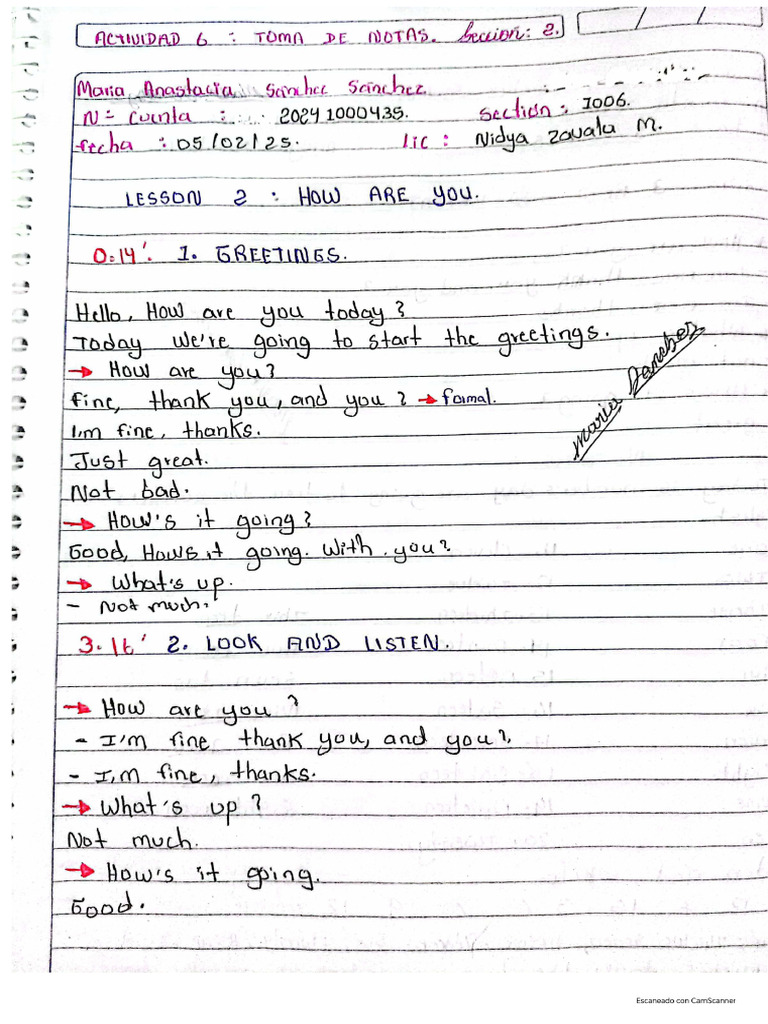 ACTIVIDAD 6 : TOMA DE NOTAS. Seccion: 2.
Maria Anastacia Sánchez Sánchez
N= Cuenta : 20241000435. Section: 1006.
fecha : 05/02/25. lic : Nidya Zavala M.
LESSON 2 : HOW ARE YOU.
0:14'. 1. GREETINGS.
Hello, How are you today?
Today We're going to start the greetings.
→ How are you?
fine, thank you, and you? → formal.
I,m fine, thanks.
Maria Sanchez
Just great.
Not bad.
→ How's it going?
Good, Hows it going. With. you?
→ What's up.
- Not much.
3.16' 2. LOOK AND LISTEN.
→ How are you?
- I'm fine thank you, and you?,
- I,m fine, thanks.
→ What's up?
Not much.
→ How's it going.
Good.
Escaneado con CamScanner